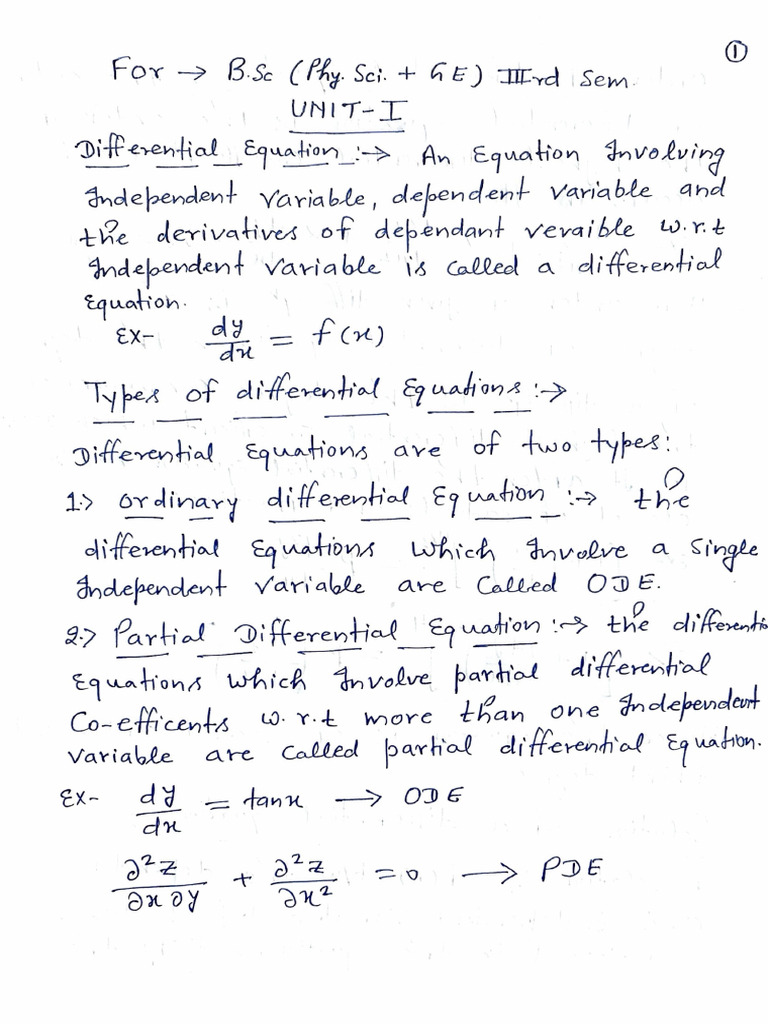 ①
For → B.Sc (Phy. Sci. + GE) IIIrd Sem.
UNIT-I
Differential Equation :→ An Equation Involving
Independent variable, dependent variable and
the derivatives of dependant veraible w.r.t
Independent variable is called a differential
Equation.
Ex- dy/dx = f(x)
Types of differential Equations :→
Differential Equations are of two types:
1.> ordinary differential Equation :→ the
differential Equations which Involve a single
Independent variable are called ODE.
2.> Partial Differential Equation :→ the differenti
Equations which Involve partial differential
Co-efficents w.r.t more than one Independent
variable are called partial differential Equation.
Ex- dy/dx = tanx → ODE
∂²z/∂x∂y + ∂²z/∂x² = 0 → PDE